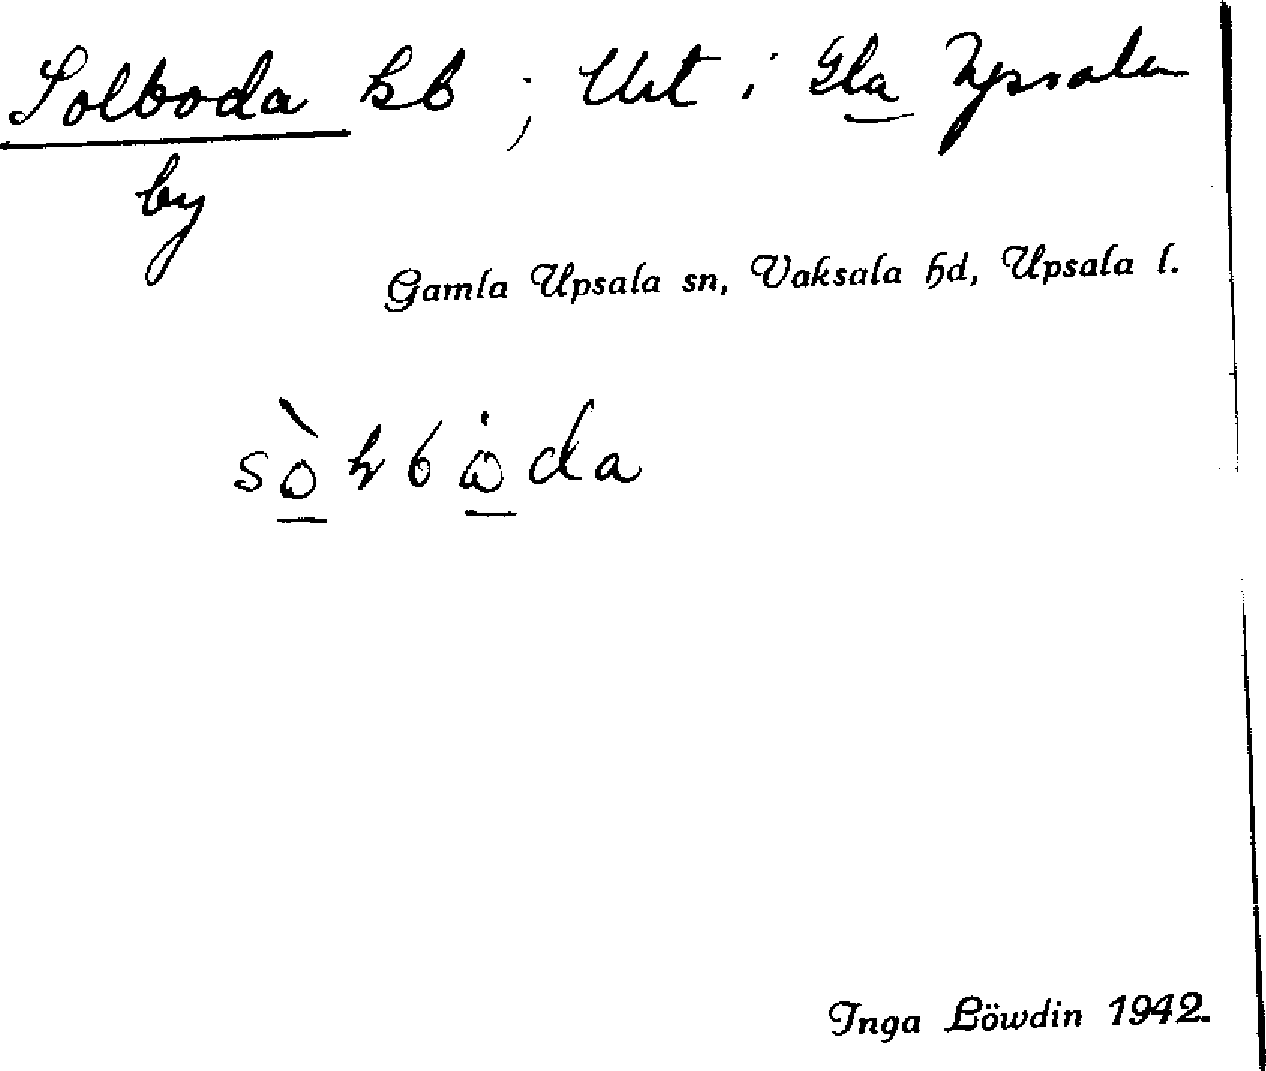 Solboda hb; Urt i Gla Upsala
by
Gamla Upsala sn, Vaksala hd, Upsala l.
Inga Löwdin 1942.